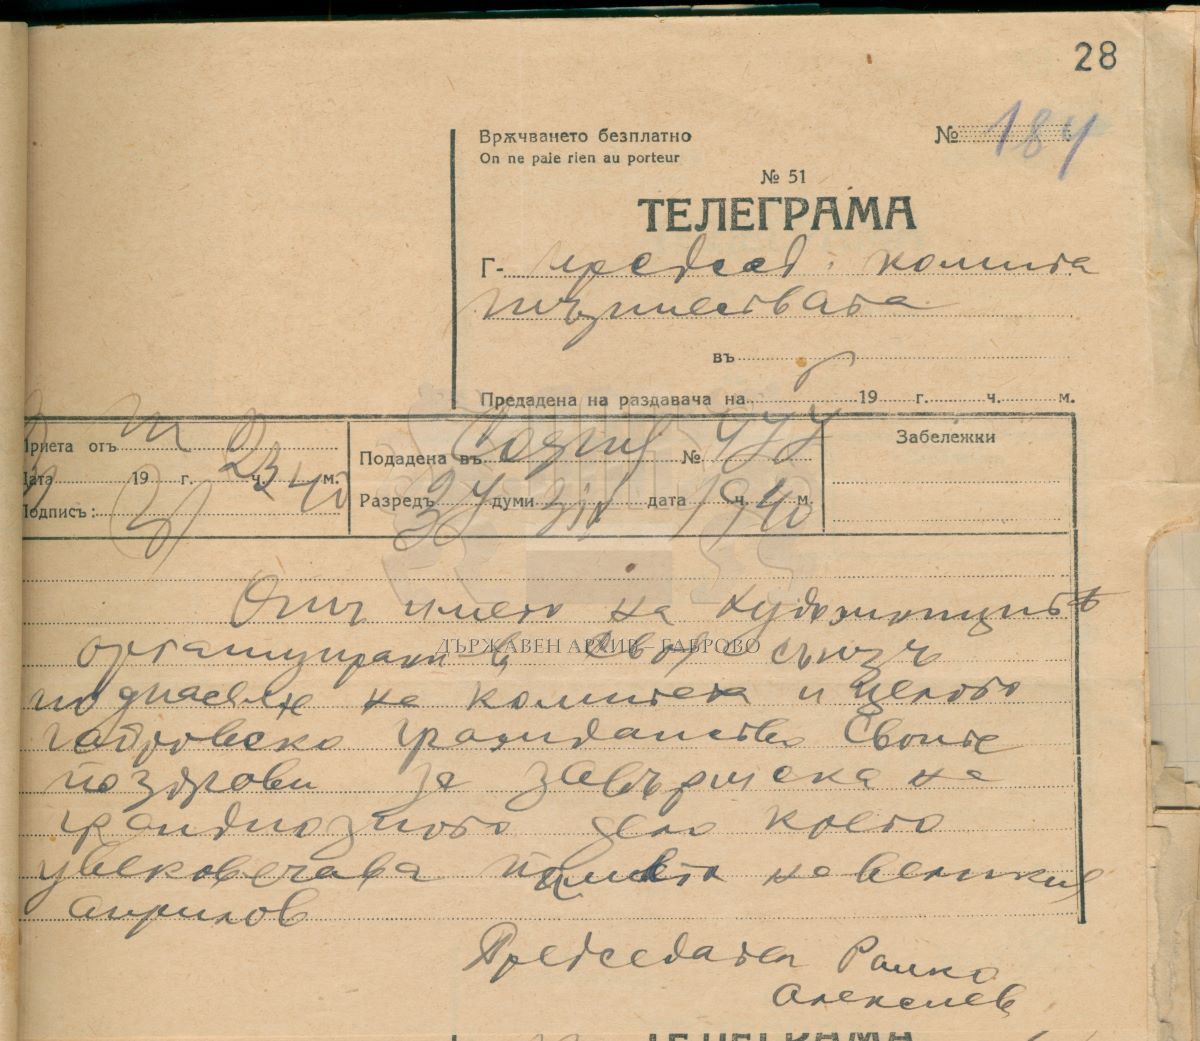 28
Врѫчването безплатно
On ne paie rien au porteur
№ 184
№ 51
ТЕЛЕГРАМА
Г- председ. комита
тържествата
въ
Предадена на раздавача на 19 г. ч. м.
Приета отъ
Дата 19 г. 23 ч. 40 м.
Подписъ:
Подадена въ София №
Разредъ 34 думи дата 19 ч. 40 м.
Забележки
Отъ името на художницитѣ
организирани въ своя съюзъ
поднасяме на комитета и целото
габровско гражданство своите
поздрави за завършека на
грандиозното дело което
увековечава паметта на великия
априлов
Председател Райко
Алексиев
ДЪРЖАВЕН АРХИВ – ГАБРОВО
ТЕЛЕГРАМА